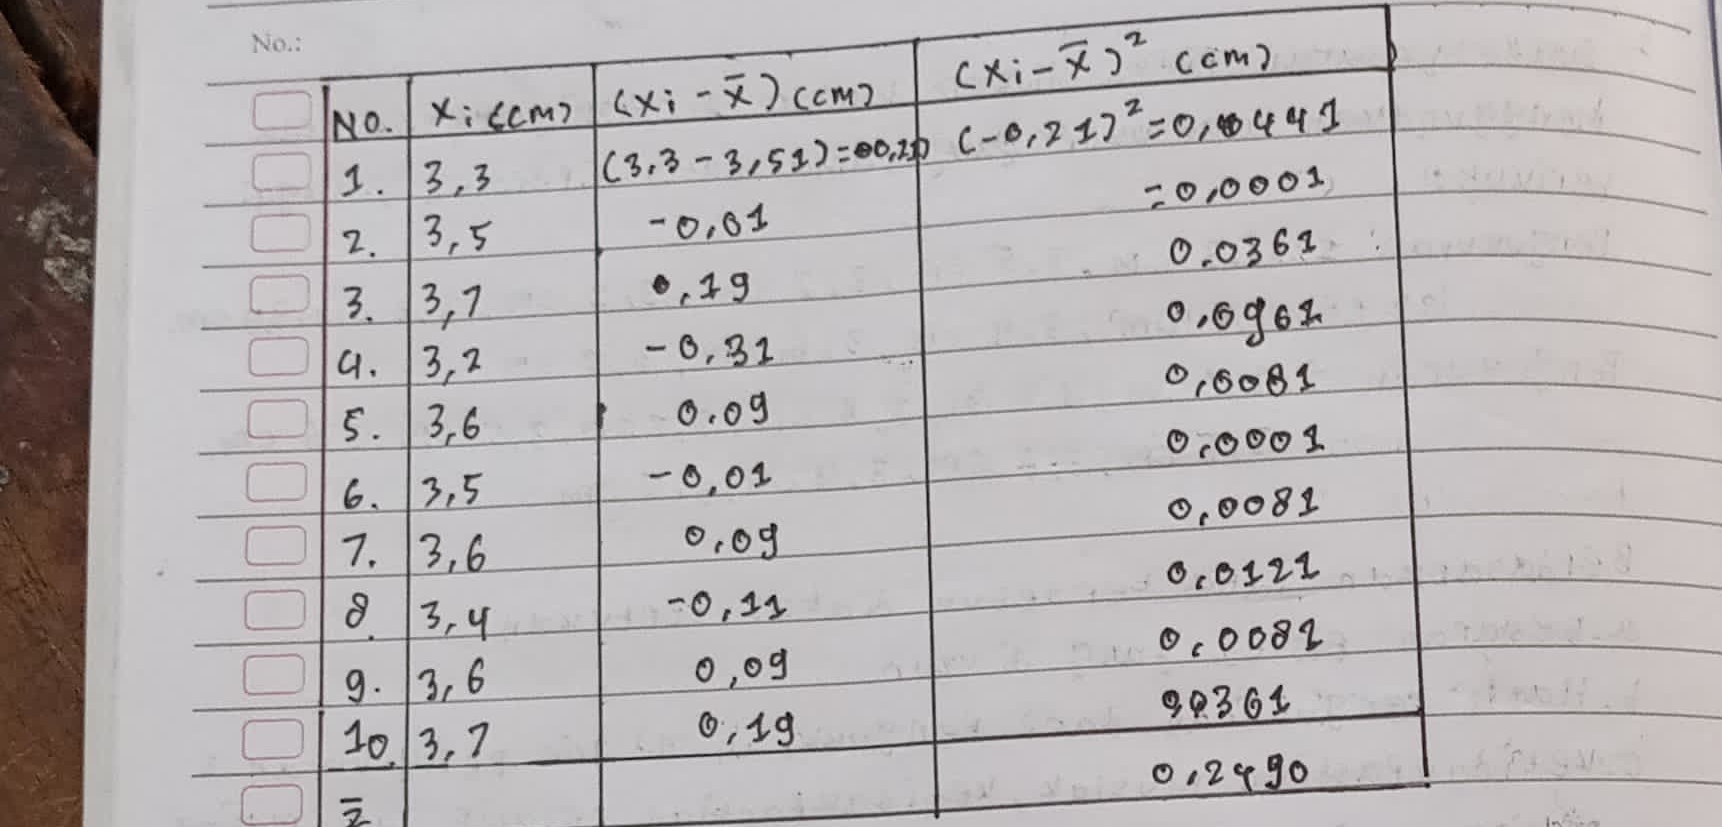 No.:
NO. Xi (cm) (Xi - X̄) (cm) (Xi - X̄)² (cm)
1. 3,3 (3,3 - 3,51) = -0,21 (-0,21)² = 0,0441
2. 3,5 -0,01 = 0,0001
3. 3,7 0,19 0.0361
4. 3,2 -0,31 0,0961
5. 3,6 0.09 0,0081
6. 3,5 -0,01 0,0001
7. 3,6 0,09 0,0081
8. 3,4 -0,11 0,0121
9. 3,6 0,09 0,0081
10. 3,7 0,19 0,0361
0,2490